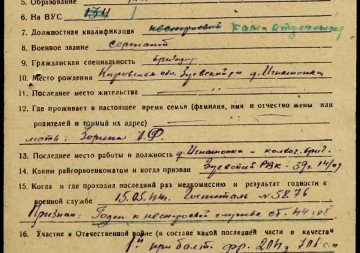 5. Образование
6. На ВУС 134
7. Должностная квалификация нестроевой
8. Военное звание сержант
9. Гражданская специальность бригадир
10. Место рождения Кировская обл. Зуевский р-н д. Игнатенки
11. Последнее место жительства
12. Где проживает в настоящее время семья (фамилия, имя и отчество жены или
родителей и точный их адрес)
мать: Зорина А.Ф.
13. Последнее место работы и должность д. Игнатенки - колхоз, бриг.
14. Каким райгорвоенкоматом и когда призван Зуевский РВК - 39г.
15. Когда и где проходил последний раз медкомиссию и результат годности к
военной службе 15.05.44г. Госпиталь № 5876
Признан: Годен к нестроевой службе ст. 44
16. Участие в Отечественной войне (в составе какой последней части в качестве
1й прибалт. фр.